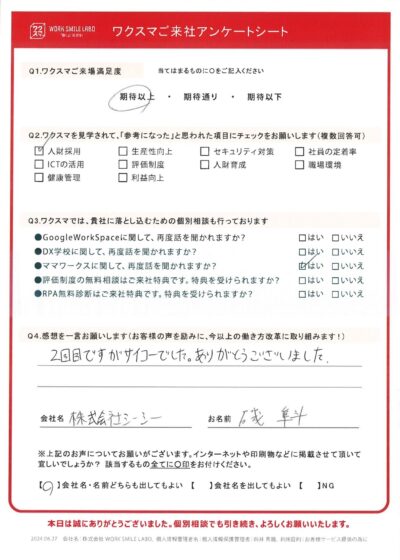 WORK SMILE LABO
ワクスマご来社アンケートシート
Q1.ワクスマご来場満足度 当てはまるものに〇をご記入ください
期待以上 ・ 期待通り ・ 期待以下
Q2.ワクスマを見学されて、「参考になった」と思われた項目にチェックをお願いします(複数回答可)
☑人財採用 □生産性向上 □セキュリティ対策 □社員の定着率
□ICTの活用 □評価制度 □人財育成 □職場環境
□健康管理 □利益向上
Q3.ワクスマでは、貴社に落とし込むための個別相談も行っております
●GoogleWorkSpaceに関して、再度話を聞かれますか? □はい □いいえ
●DX学校に関して、再度話を聞かれますか? □はい □いいえ
●ママワークスに関して、再度話を聞かれますか? ☑はい □いいえ
●評価制度の無料相談はご来社特典です。特典を受けられますか? □はい □いいえ
●RPA無料診断はご来社特典です。特典を受けられますか? □はい □いいえ
Q4.感想を一言お願いします(お客様の声を励みに、今以上の働き方改革に取り組みます!)
2回目ですがサイコーでした。ありがとうございました。
会社名 株式会社シーシー お名前 磯 隼斗
※上記のお声についてお願いがございます。インターネットや印刷物などに掲載させて頂いて
宜しいでしょうか? 該当するもの全てに〇印をお付けください。
【〇】会社名・名前どちらも出してもよい 【 】会社名を出してもよい 【 】NG
本日は誠にありがとうございました。個別相談でも引き続き、よろしくお願いいたします。